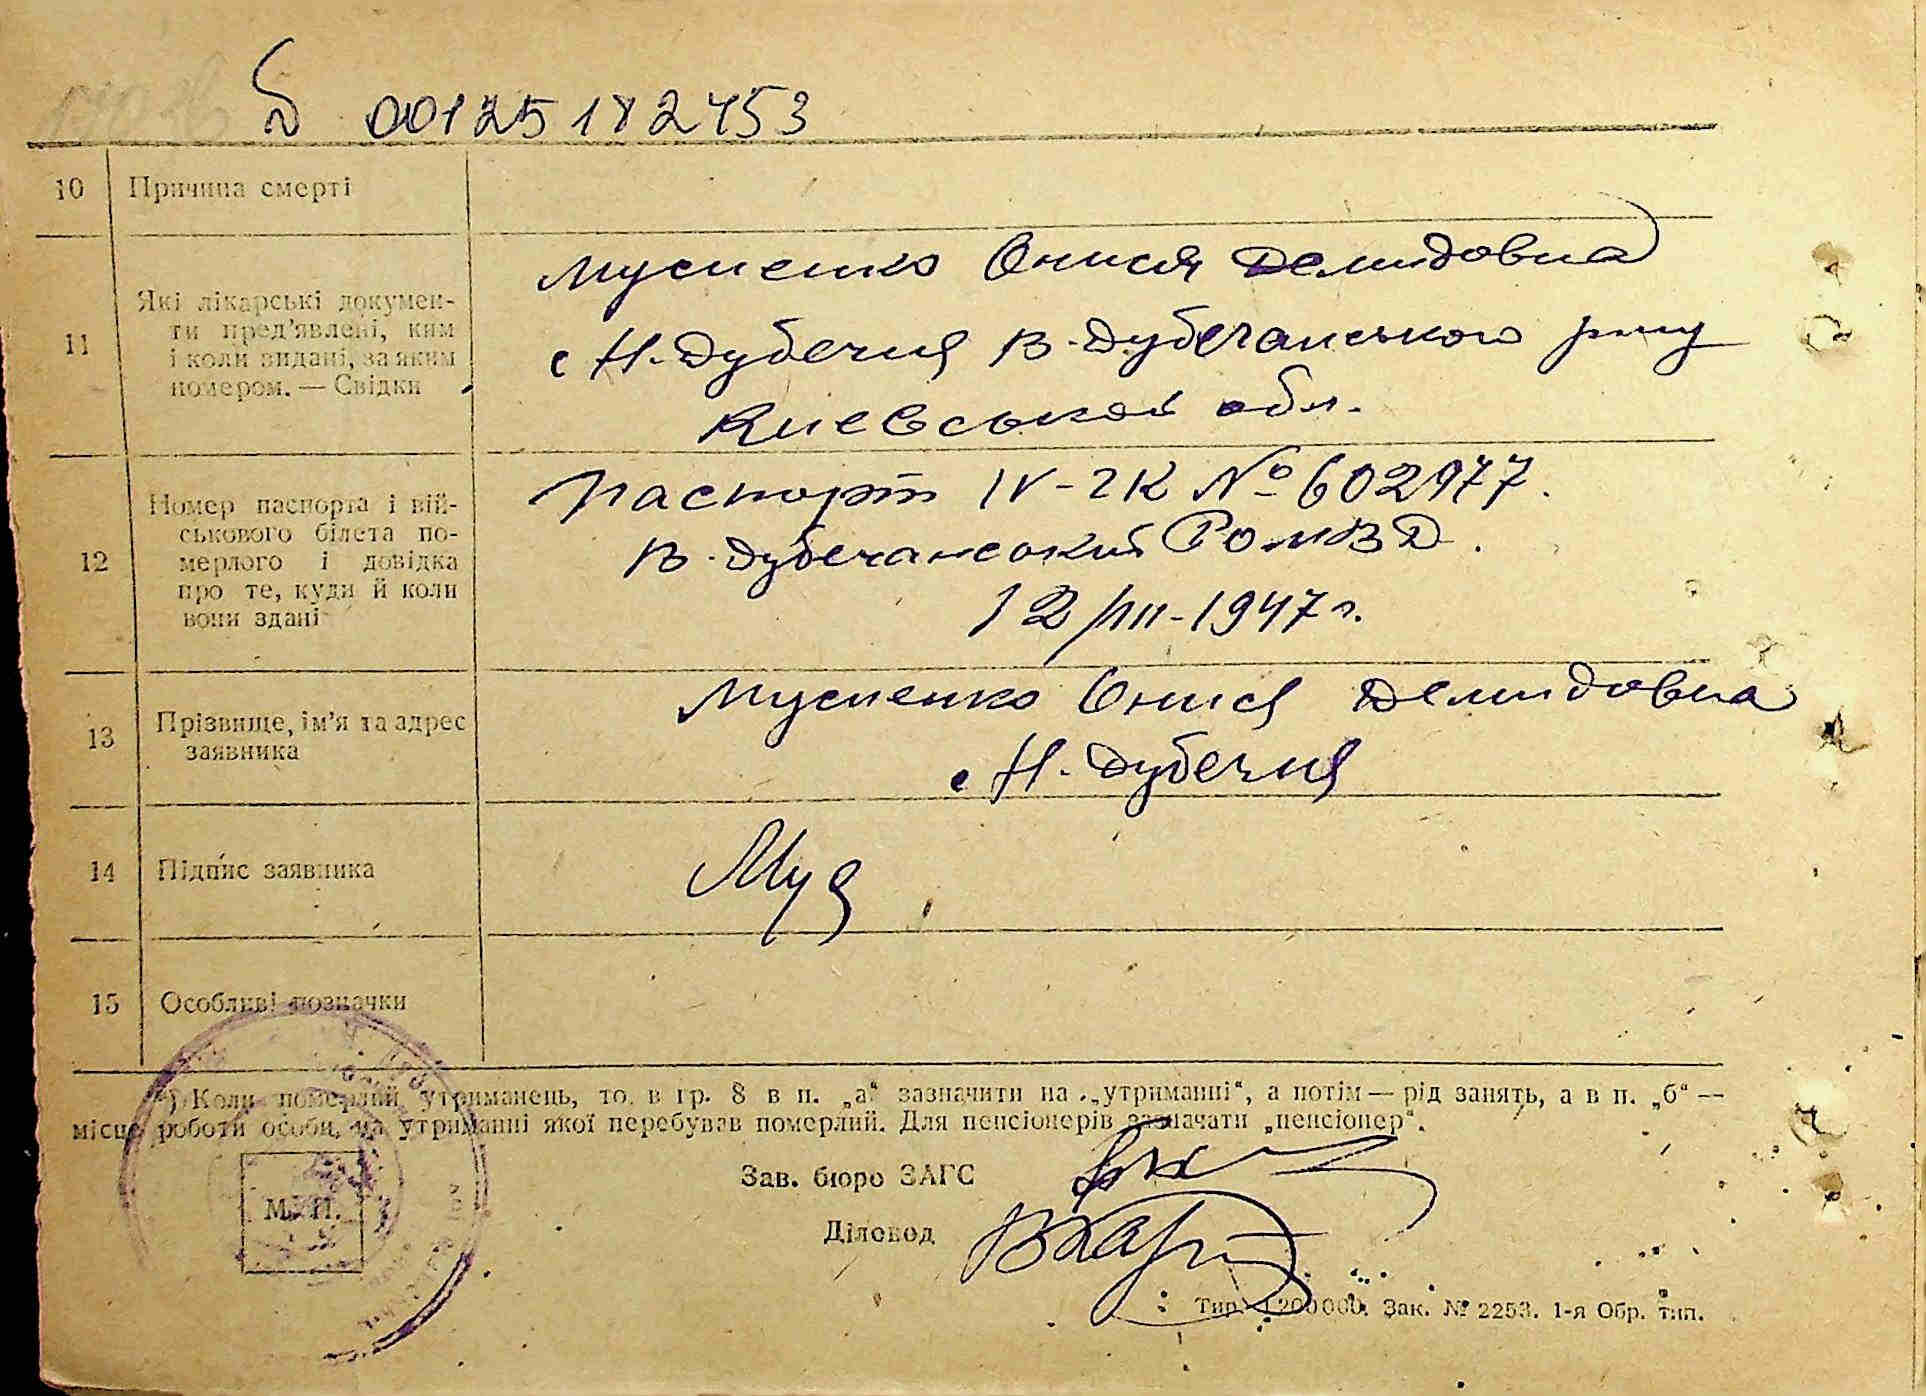 00125182453
10 Причина смерті
11 Які лікарські докумен-
ти пред'явлені, ким
і коли видані, за яким
номером. — Свідки
Мусиенко Онися Демидовна
с Н-Дубечня В-Дубечанського р-ну
Киевськой обл.
12 Номер паспорта і вій-
ськового білета по-
мерлого і довідка
про те, куди й коли
вони здані
Паспорт IV-ЧК № 602977.
В-Дубечанський РОМВД.
12/III-1947 г.
13 Прізвище, ім'я та адрес
заявника
Мусиенко Онися Демидовна
с Н-Дубечня
14 Підпис заявника
Мус
15 Особливі позначки
*) Коли померлий утриманець, то в гр. 8 в п. „а“ зазначити на „утриманні“, а потім — рід занять, а в п. „б“ —
місце роботи особи, на утриманні якої перебував померлий. Для пенсіонерів зазначати „пенсіонер“.
Зав. бюро ЗАГС
М. П.
Діловод
Тир. 1200000. Зак. № 2253. 1-я Обр. тип.